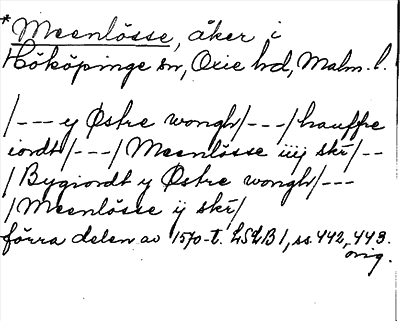 *Meenlösse, åker i
Hököpinge sn, Oxie hd, Malm. l.
/--- y Østre wongh/---/hauffre
iordt/---/Meenlösse iiij skr/--
/Bygiordt y Østre wongh/---
/Meenlösse ij skr/
förra delen av 1570-t. LSLB 1, ss. 442, 443.
orig.